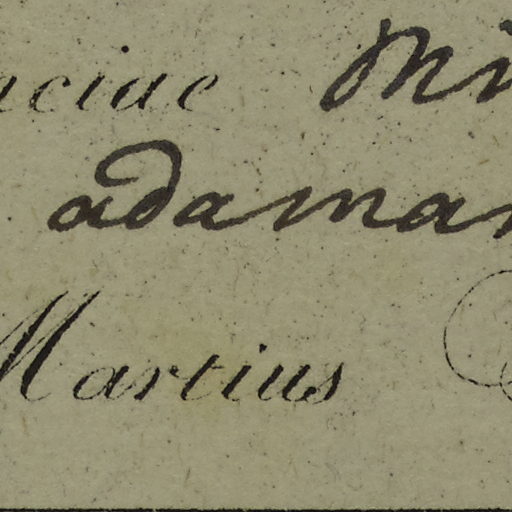 nciae Min
adaman
Martius